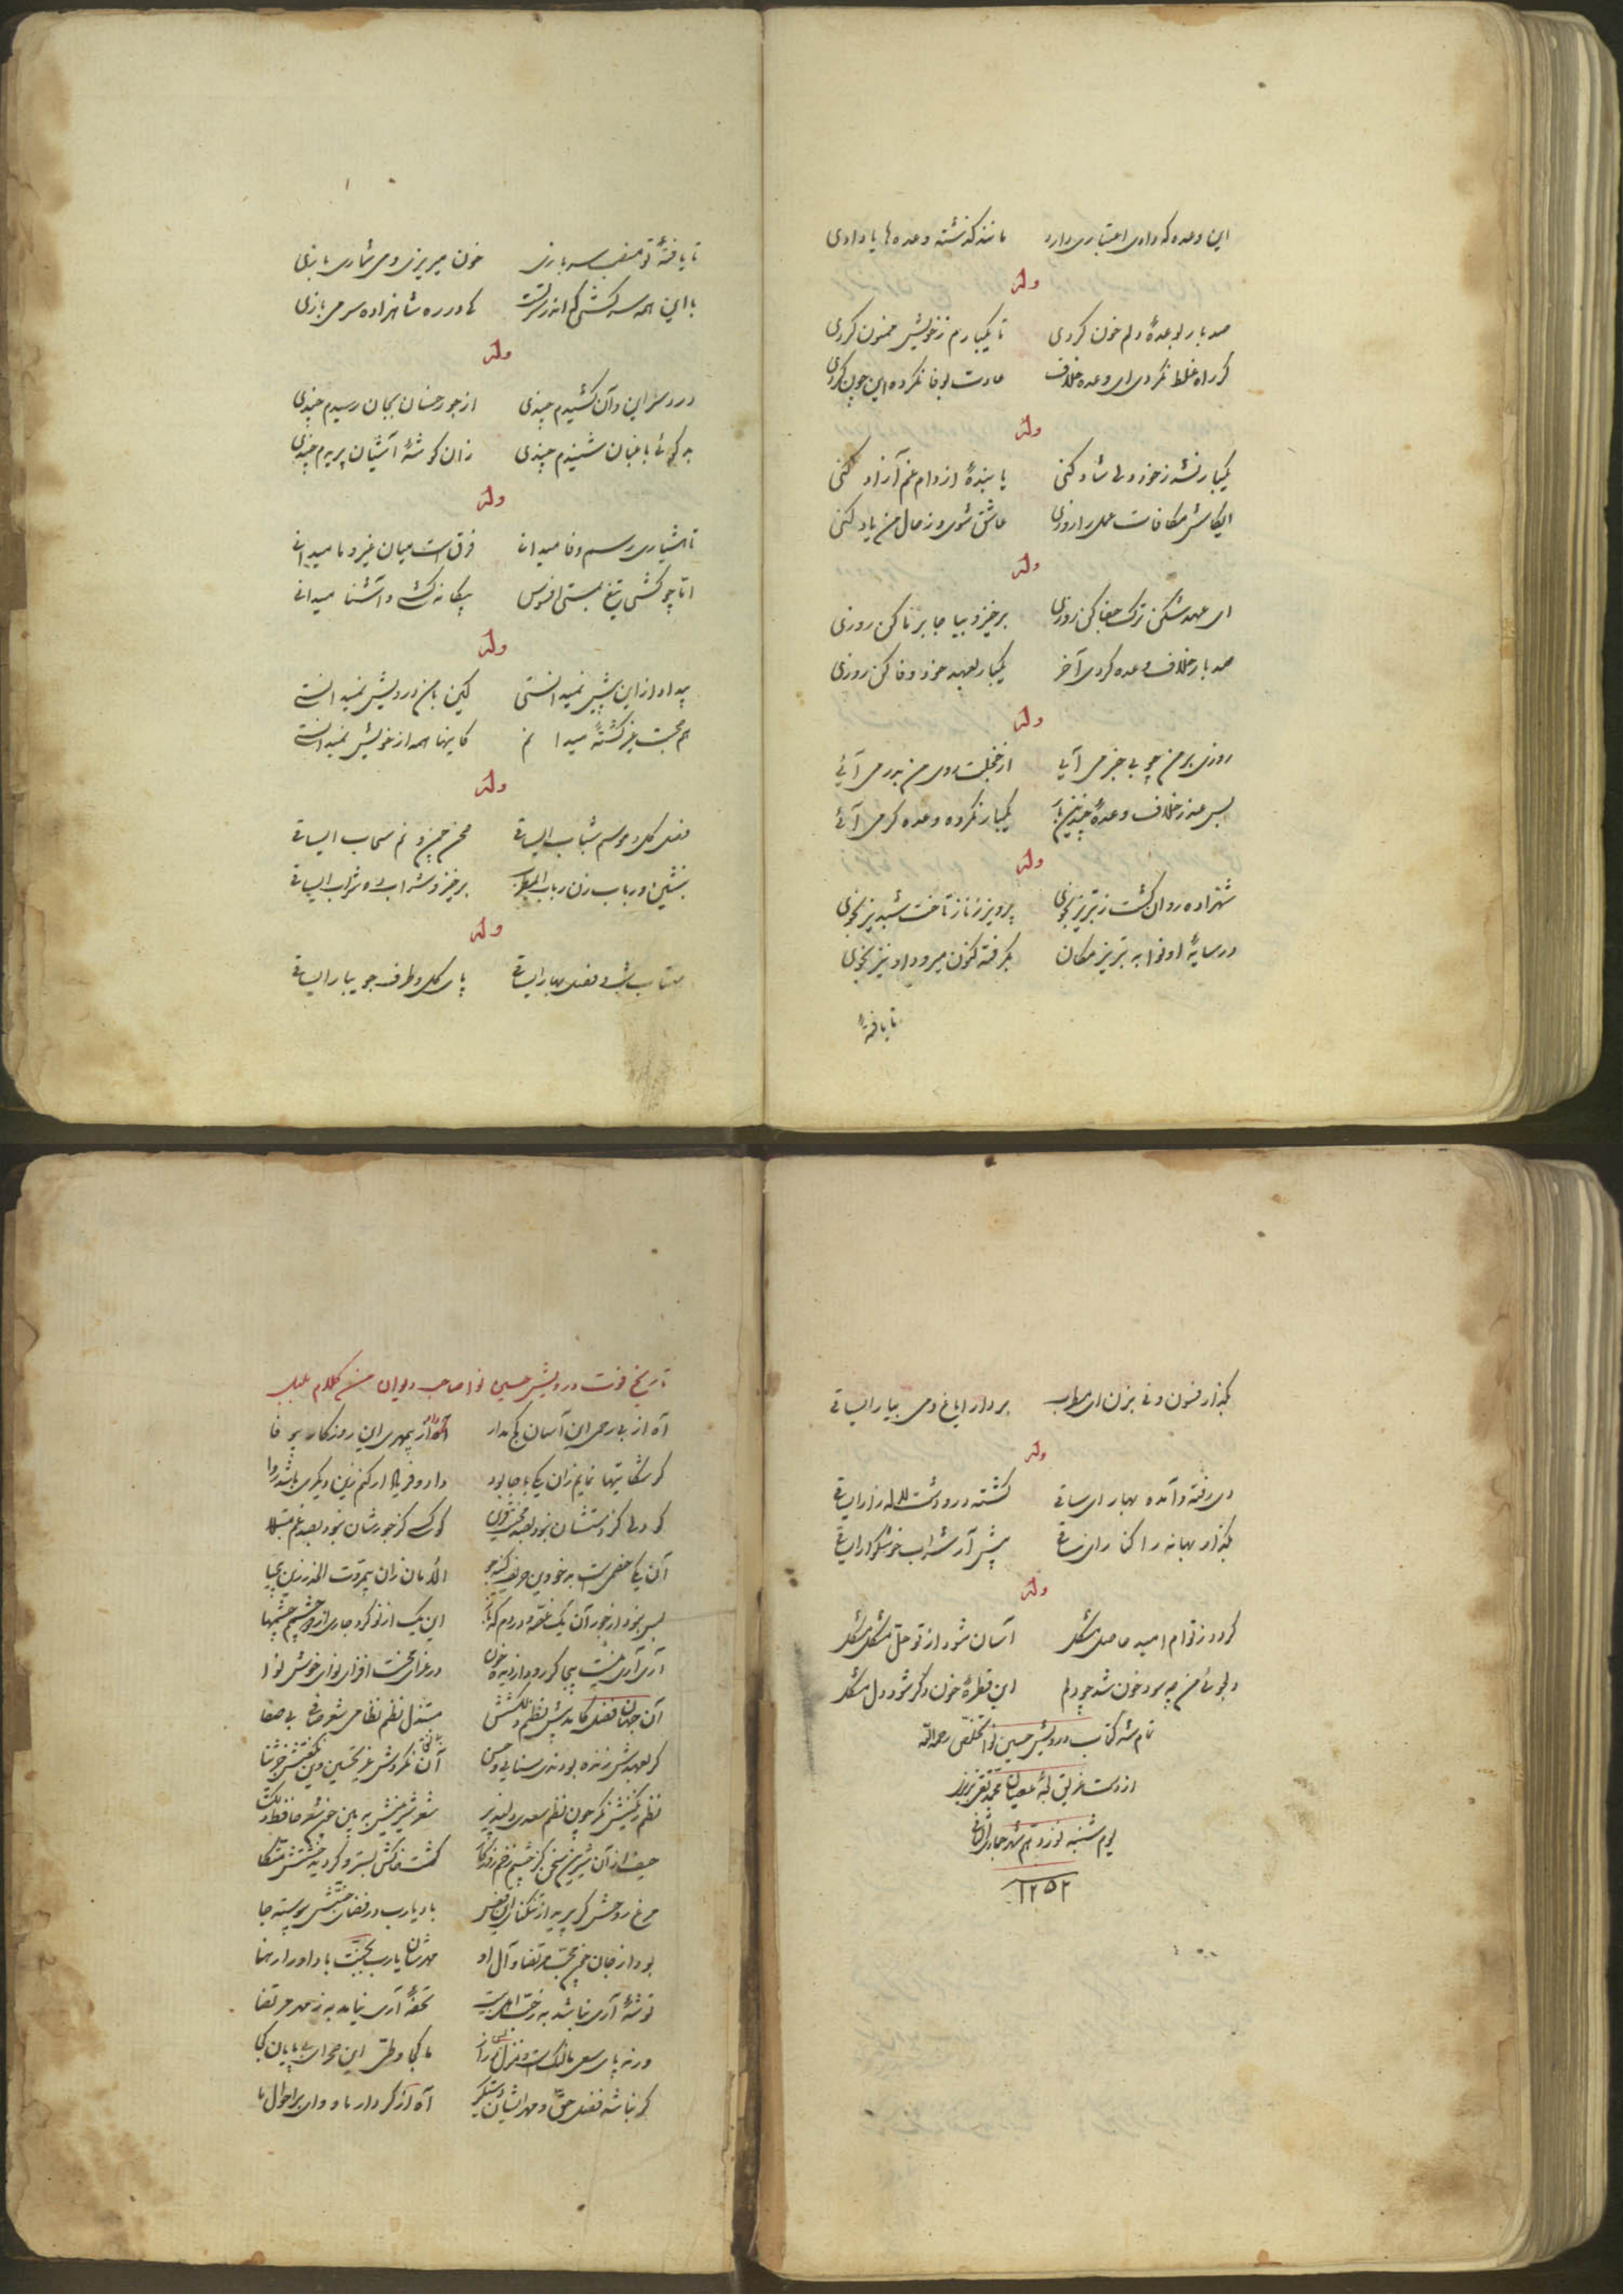 این وعده که دادی اعتباری دارد مانند گذشته وعده ها یا دادی
وله
صد بار بوعدهٔ دلم خون کردی تا یکبارم ز خویش ممنون کردی
گر راه غلط نکردی ای وعده خلاف عادت بوفا نکرده این چون کردی
وله
یکبار نشد ز خود دلی شاد کنی یا بندهٔ از دام غم آزاد کنی
ایکاش مکافات عمل را روزی عاشق شوی و ز حال من یاد کنی
وله
ای عهد شکن ترک جفا کن روزی برخیز و بیا جا بر ما کن روزی
صد بار خلاف وعده کردی آخر یکبار بعهد خود وفا کن روزی
وله
روزی بر من چو بی خبر می آیی از خجلت روی من بدر می آئی
بس عذر خلاف وعدهٔ چندین بار یکبار نکرده وعده گر می آئی
وله
شهزاده روان گشت ز تبریز بخوی پرویز ز ناز تاخت شبدیز بخوی
در سایهٔ او نوا به تبریز مکان بگرفته کنون میرود او نیز بخوی
تا یافتهٔ
تا یافتهٔ تو منصب سربازی خون میریزی و می شماری بازی
با این همه سرکشی که اندر سر تست که در ره شاهزاده سر می بازی
وله
درد سر این و آن کشیدم چندی از جور خسان بجان رسیدم چندی
بد گوئی باغبان شنیدم چندی زان گوشهٔ آشیان پریدم چندی
وله
تا هشیاری رسم وفا میدانی فرق است میان غیر و ما میدانی
اما چو کشی تیغ بمستی افسوس بیگانه ز که و آشنا میدانی
وله
بیداد از این پیش نمیدانستی لیکن با من درویش نمیدانستی
هم صحبت غیر گشتهٔ میدانم کاینها همه از خویش نمیدانستی
وله
فصل گل و موسم شباب ایساقی صحن چمن و نم سحاب ایساقی
بنشین و رباب زن رباب ای مطرب برخیز و شراب ده شراب ایساقی
وله
مهتاب شب و فصل بهار ایساقی پای گل و طرف جویبار ایساقی
بگذار فسون و نی بزن ای مطرب بردار ایاغ و می بیار ایساقی
وله
دی رفته و آمده بهار ای ساقی گشته در و دشت لاله زار ایساقی
بگذار بهانه را کنار ای ساقی پیش آر شراب خوشگوار ایساقی
وله
گردد ز توام امید حاصل مشکل آسان شود از تو حل مشکل مشکل
دلجوئی من چه سود خون شد چو دلم این قطرهٔ خون دگر شود دل مشکل
تمام شد کتاب درویش حسین نوا تخلص رحمه الله
از دست غریق لجهٔ عصیان محمد تقی تبریزی
یوم شنبه نوزدهم شهر جمادی الثانی
١٢٥٢
تاریخ فوت درویش حسین نوا صاحب دیوان من کلام بلبل
آه از بی رحمی این آسان کج مدار آه از بیمهری این روزگار بیوفا
گر شکایتها نمایم زان یکی با جا بود داد و فریاد ار کنم زین دیگری باشد روا
کو دلی کز دستشان نبود بصد محنت قرین کو کسی کز جورشان نبود بصد غم مبتلا
آن یکی خصمی است بدخو دین حریف کینه جو الامان زان بیمروت الحذر زین بیحیا
بس نبود از جور آن یک غصه و دردم که باز این یک از نو کرد جاری از دو چشمم چشمها
آری آری نیست بیجا گر رود از دیده خون در عزای محنت افزای نوای خوش نوا
آن جهان فضل کاندر پیش نظم دلکشش مبتذل نظم نظامی شعر صافی بی صفا
گر بعهدش زنده بودندی سنایی و حسن آن نکردش غیر تحسین وین نگفتش جز ثنا
نظم رنگینش نگر چون نظم سعدی دلپذیر شعر شیرینش به بین چون شعر حافظ دلگشا
حیف از آن شیرین سخن کز چشم زخم روزگار گشت خاکش بستر و گردید خشتش متکا
مرغ روحش گر پرید از تنگنای این قفس باد یارب در فضای جنتش پیوسته جا
بود از جان چون محب مرتضا و آل او مهرشان یارب بجنت باد او را رهنما
توشهٔ آری نباشد به ز حب اهل بیت تحفهٔ آری نیابد به ز مهر مرتضا
ورنه پای سعی ما لنگ است و منزل بس دراز ما کجا و طی این صحرای بی پایان کجا
گر نباشد فضل حق و مهر ایشان دستگیر آه از کردار ما و وای بر احوال ما